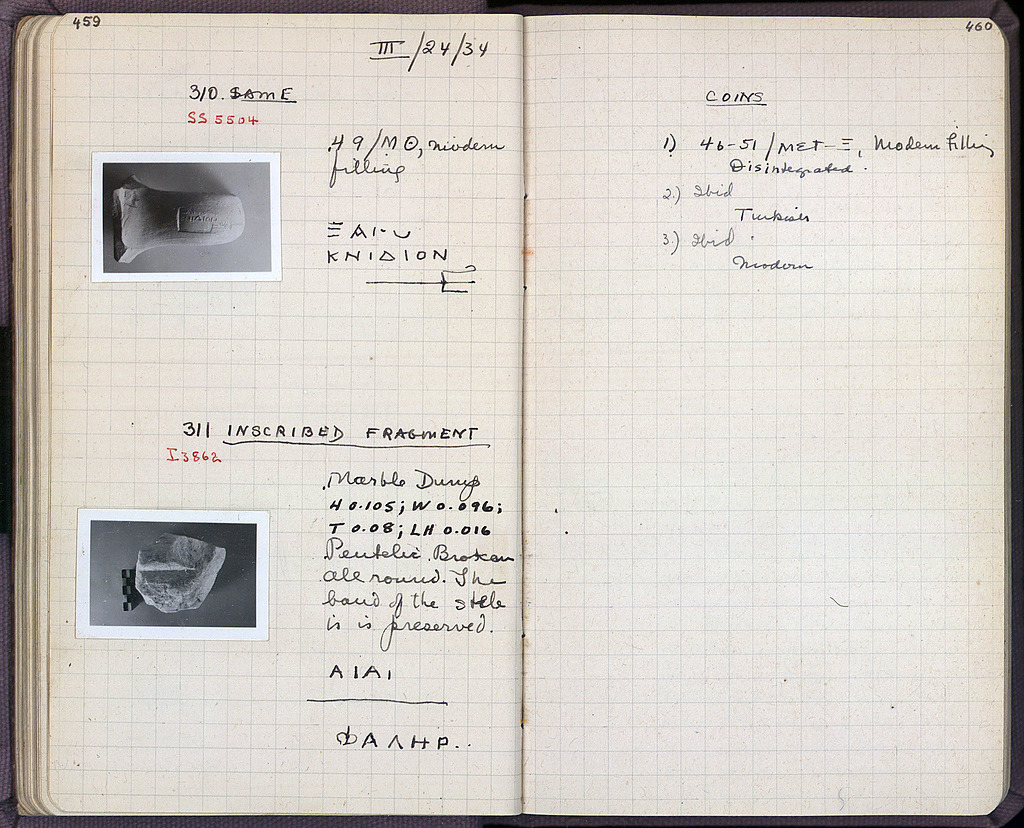 459
III/24/34
310. SAME
SS 5504
49/ΜΘ, modern
filling
ΚΝΙΔΙΟΝ
311 INSCRIBED FRAGMENT
I 3862
Marble Dump
H 0.105; W 0.096;
T 0.08; LH 0.016
Pentelic. Broken
all round. The
band of the stele
is is preserved.
ΑΙΑΙ
ΦΑΛΗΡ..
460
COINS
1) 46-51/ΜΣΤ-Ξ, Modern Filling
Disintegrated.
2.) Ibid
Turkish
3.) Ibid.
Modern